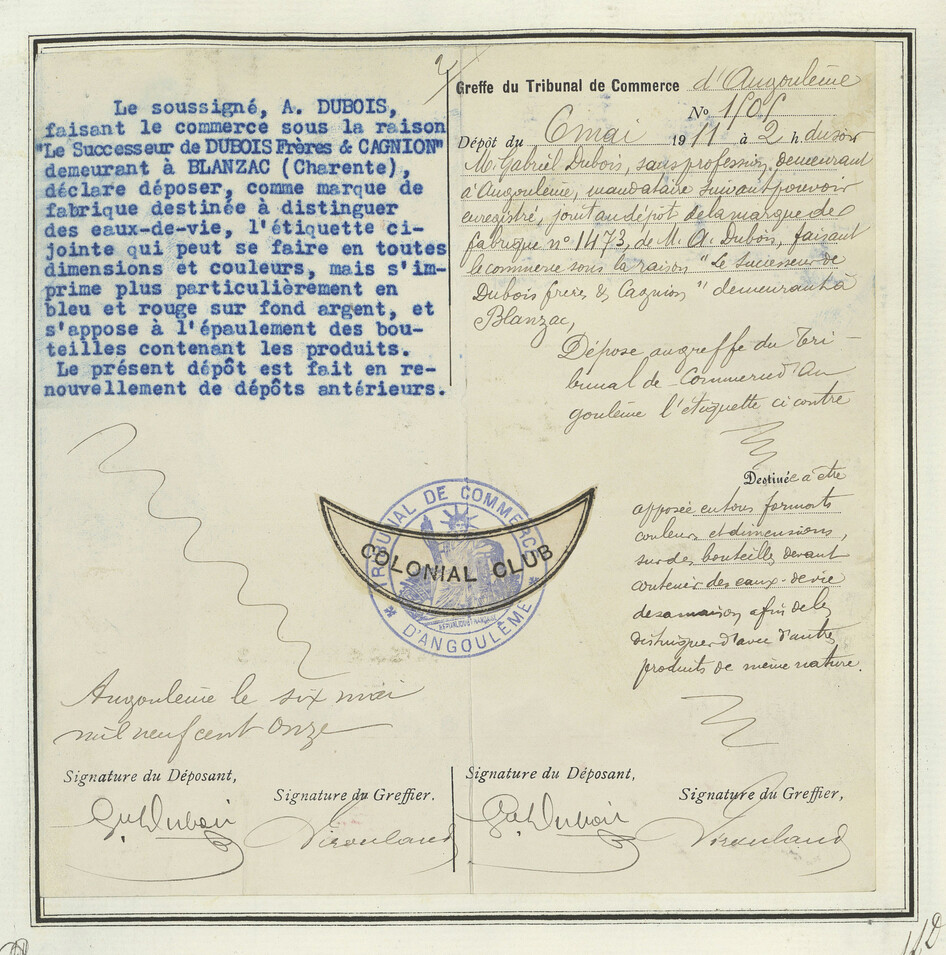 Le soussigné, A. DUBOIS,
faisant le commerce sous la raison
"Le Successeur de DUBOIS Frères & CAGNION"
demeurant à BLANZAC (Charente),
déclare déposer, comme marque de
fabrique destinée à distinguer
des eaux-de-vie, l'étiquette ci-
jointe qui peut se faire en toutes
dimensions et couleurs, mais s'im-
prime plus particulièrement en
bleu et rouge sur fond argent, et
s'appose à l'épaulement des bou-
teilles contenant les produits.
Le présent dépôt est fait en re-
nouvellement de dépôts antérieurs.
Angoulême le six mai
mil neuf cent onze
Signature du Déposant,
Signature du Greffier.
G. Dubois
Greffe du Tribunal de Commerce d'Angoulême
No
Dépôt du 6 mai 1911 à 2 h. du soir
M. Gabriel Dubois, sans profession, demeurant
à Angoulême, mandataire suivant pouvoir
enregistré, joint au dépôt de la marque de
fabrique n° 1473, de M. A. Dubois, faisant
le commerce sous la raison "Le Successeur de
Dubois frères & Cagnion" demeurant à
Blanzac,
Dépose au greffe du Tri-
bunal de Commerce d'An
goulême l'étiquette ci contre
Destinée à être
apposée en tous formats
couleurs et dimensions,
sur des bouteilles devant
contenir des eaux-de-vie
de sa maison afin de les
distinguer d'avec d'autres
produits de même nature.
TRIBUNAL DE COMMERCE
COLONIAL CLUB
REPUBLIQUE FRANÇAISE
D'ANGOULÊME
Signature du Déposant,
Signature du Greffier,
G. Dubois